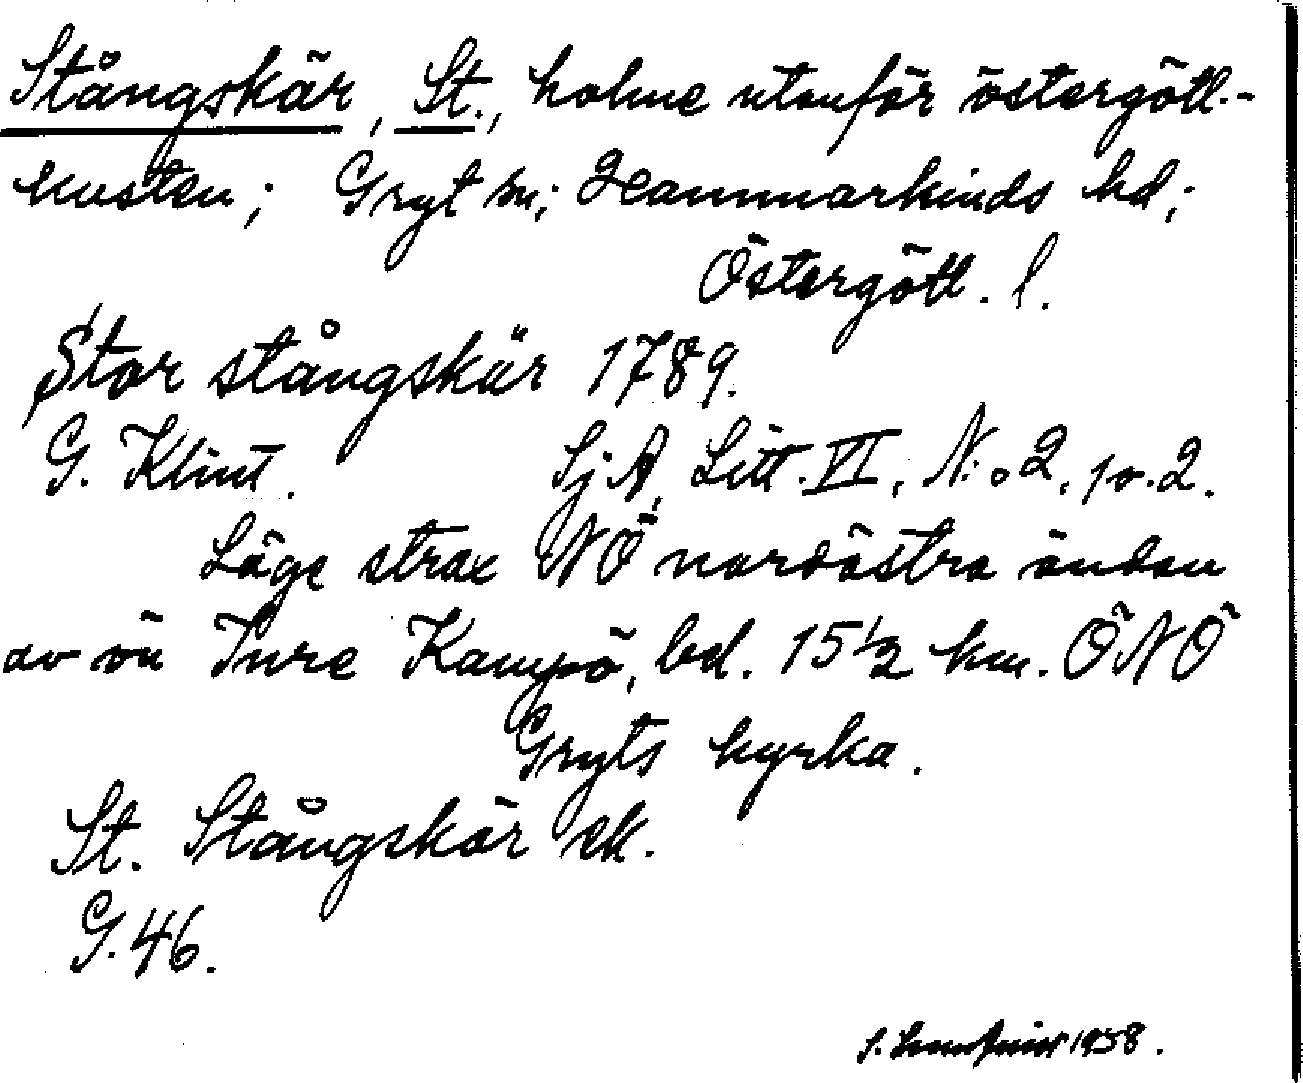 Stångskär, St., holme utanför östergötl.-
kusten; Gryt sn; Hammarkinds hd;
Östergötl. l.
Stor stångskär 1789.
G. Klint. SjA, Litt. VI, N:o 2, p. 2.
Läge strax NÖ nordöstra ändan
av ön Ture Kampö, bd. 15 1/2 km. ÖNÖ
Gryts kyrka.
St. Stångskär ek.
G. 46.
S. 1958.